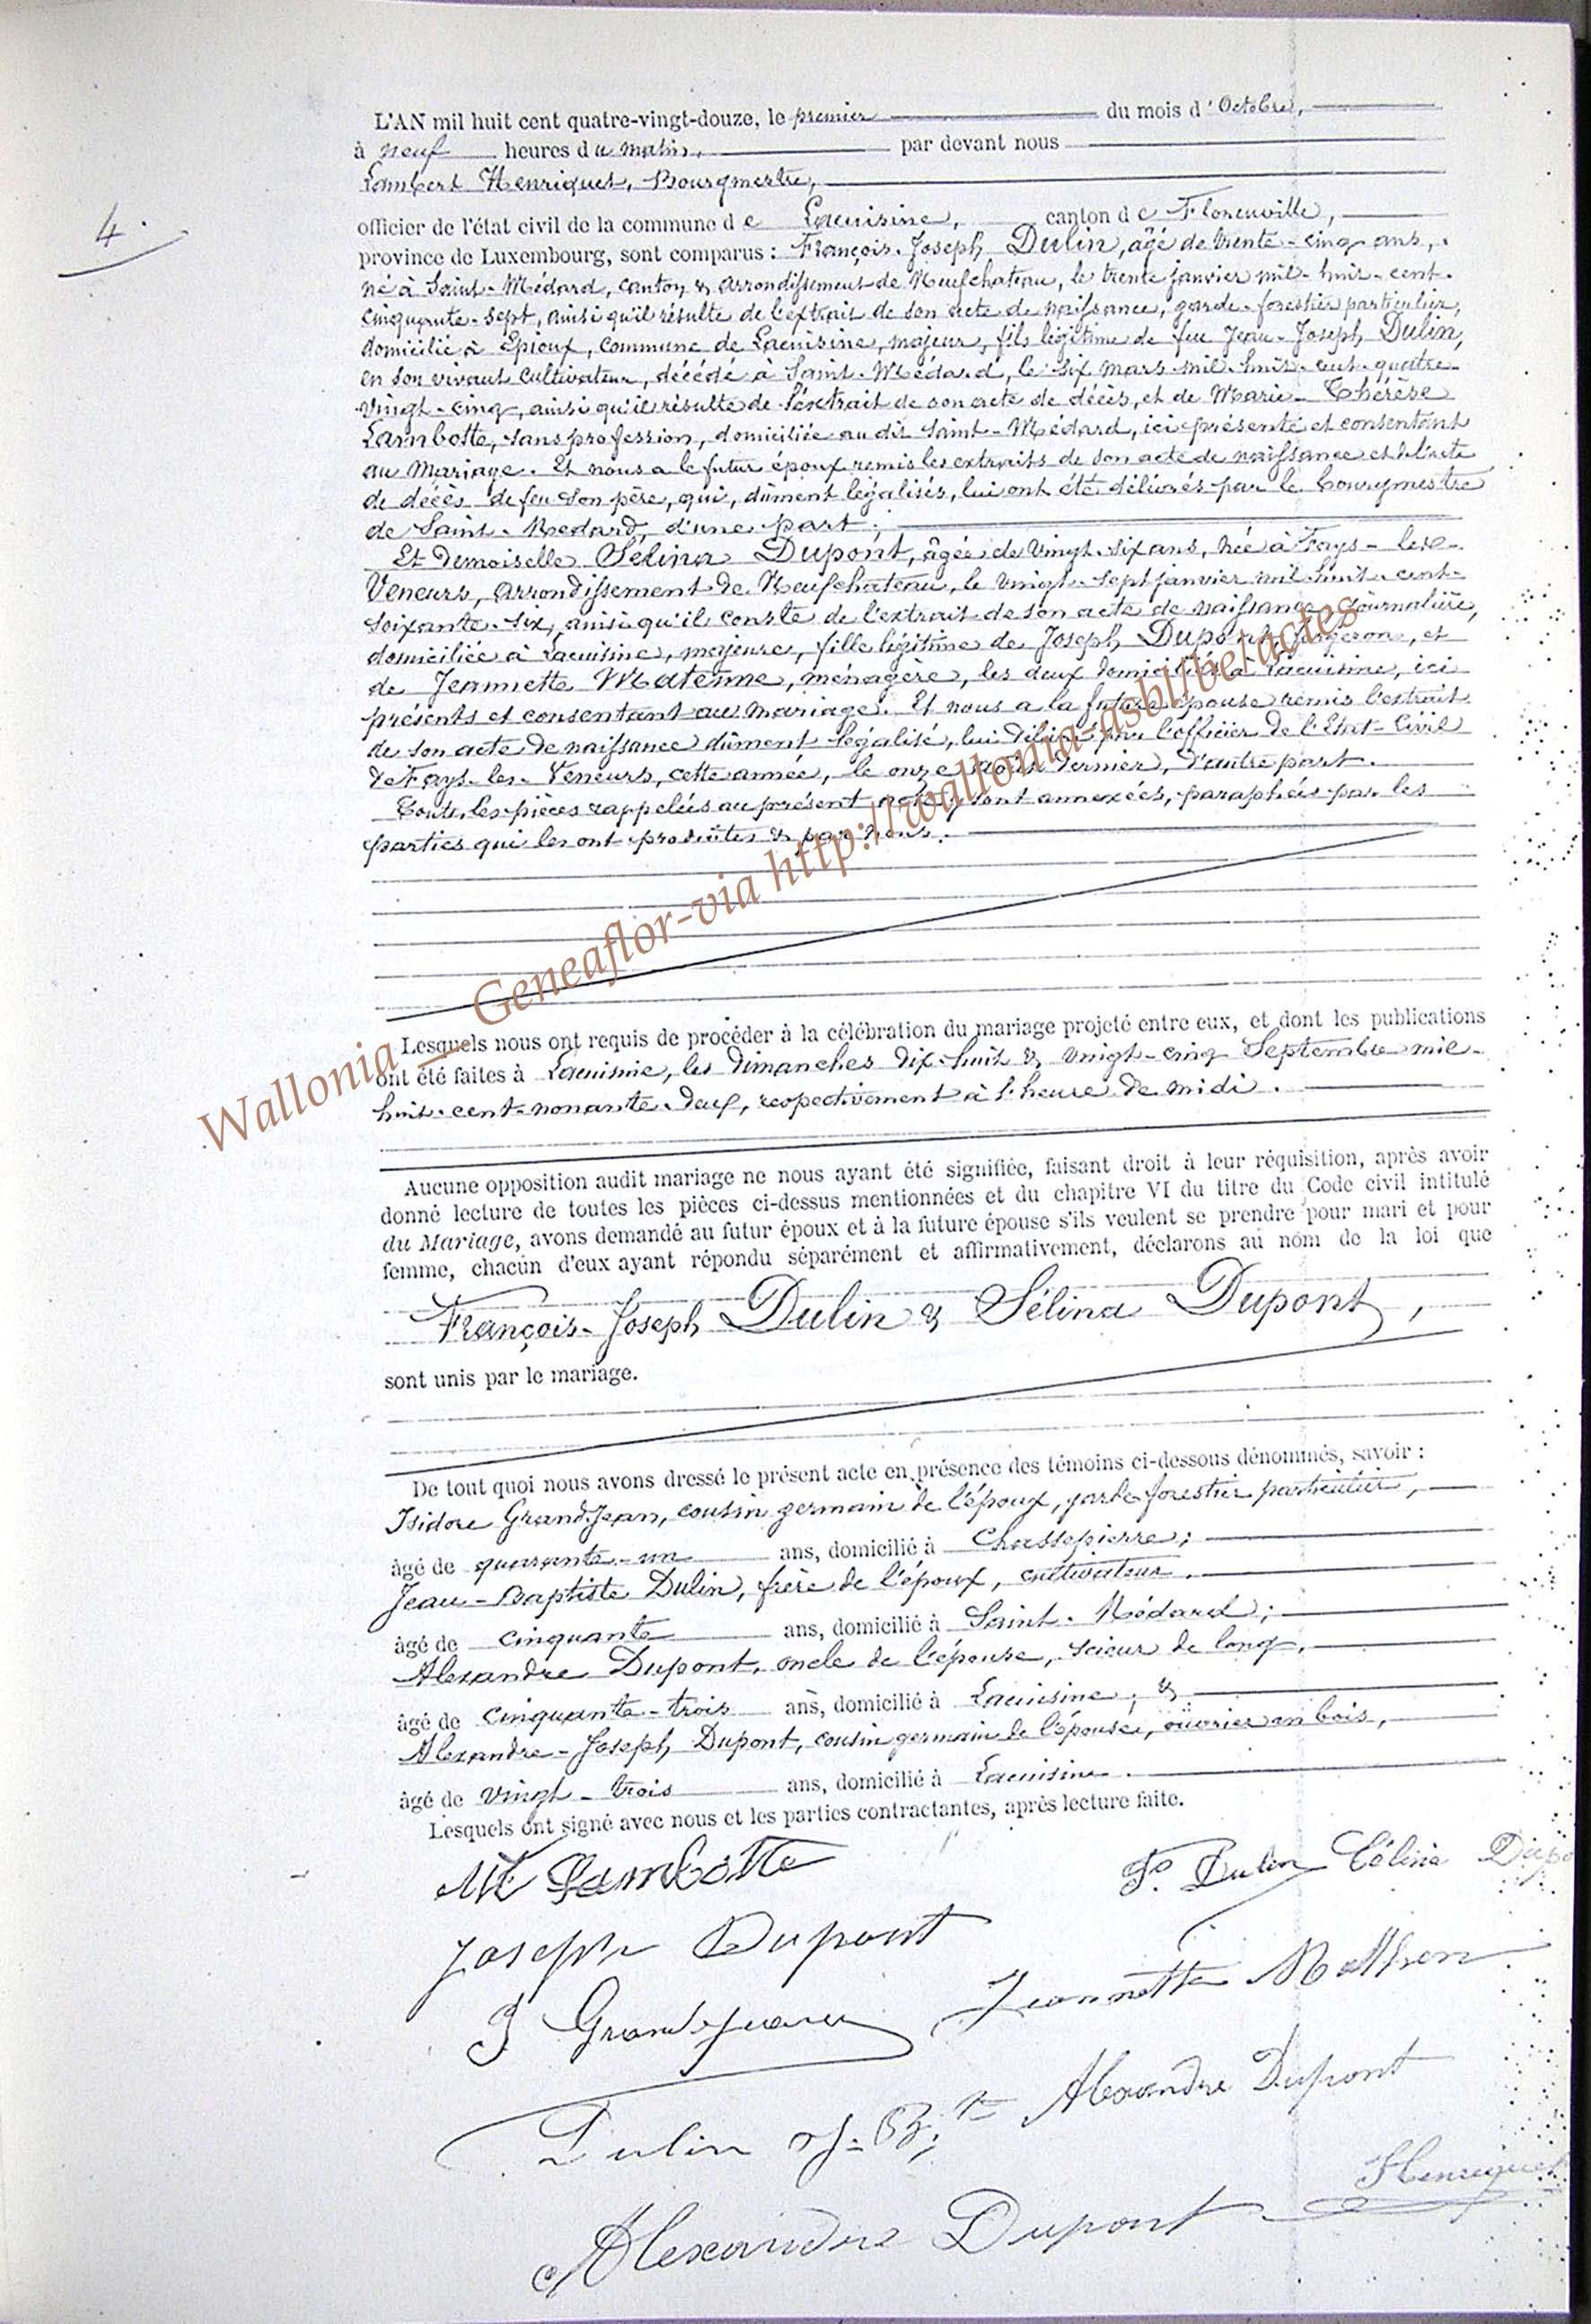 4.
L'AN mil huit cent quatre-vingt-douze, le premier du mois d'Octobre,
à neuf heures du matin, par devant nous
Lambert Henriquet, Bourgmestre,
officier de l'état civil de la commune de Lacuisine, canton de Florenville,
province de Luxembourg, sont comparus : François-Joseph Dulin, âgé de trente-cinq ans,
né à Saint-Médard, canton & arrondissement de Neufchateau, le trente janvier mil-huit-cent-
cinquante-sept, ainsi qu'il résulte de l'extrait de son acte de naissance, garde-forestier particulier,
domicilié à Epioux, commune de Lacuisine, majeur, fils légitime de feu Jean-Joseph Dulin,
en son vivant cultivateur, décédé à Saint-Médard, le six mars mil-huit-cent-quatre-
vingt-cinq, ainsi qu'il résulte de l'extrait de son acte de décès, et de Marie-Thérèse
Lambotte, sans profession, domiciliée au dit Saint-Médard, ici présente et consentant
au mariage. Et nous a le futur époux remis les extraits de son acte de naissance et de l'acte
de décès de feu son père, qui, dûment légalisés, lui ont été délivrés par le bourgmestre
de Saint-Médard, d'une part ;
Et Demoiselle Sélina Dupont, âgée de vingt-six ans, née à Fays-les-
Veneurs, arrondissement de Neufchâteau, le vingt-sept janvier mil-huit-cent-
soixante-six, ainsi qu'il conste de l'extrait de son acte de naissance, journalière,
domiciliée à Lacuisine, majeure, fille légitime de Joseph Dupont, forgeron, et
de Jeannette Matenne, ménagère, les deux domiciliés à Lacuisine, ici
présents et consentant au mariage. Et nous a la future épouse remis l'extrait
de son acte de naissance dûment légalisé, lui délivré par l'officier de l'Etat-Civil
de Fays-les-Veneurs, cette année, le onze août dernier, d'autre part.
Toutes les pièces rappelées au présent acte y sont annexées, paraphées par les
parties qui les ont produites & par nous.
Wallonia - Geneaflor-via http://wallonia-asbl.be/actes
Lesquels nous ont requis de procéder à la célébration du mariage projeté entre eux, et dont les publications
ont été faites à Lacuisine, les Dimanches dix-huit & vingt-cinq Septembre mil-
huit-cent-nonante-deux, respectivement à l'heure de midi.
Aucune opposition audit mariage ne nous ayant été signifiée, faisant droit à leur réquisition, après avoir
donné lecture de toutes les pièces ci-dessus mentionnées et du chapitre VI du titre du Code civil intitulé
du Mariage, avons demandé au futur époux et à la future épouse s'ils veulent se prendre pour mari et pour
femme, chacun d'eux ayant répondu séparément et affirmativement, déclarons au nom de la loi que
François-Joseph Dulin & Sélina Dupont,
sont unis par le mariage.
De tout quoi nous avons dressé le présent acte en présence des témoins ci-dessous dénommés, savoir :
Isidore Grandjean, cousin germain de l'époux, garde forestier particulier,
âgé de quarante-un ans, domicilié à Chassepierre ;
Jean-Baptiste Dulin, frère de l'époux, cultivateur,
âgé de cinquante ans, domicilié à Saint-Médard ;
Alexandre Dupont, oncle de l'épouse, scieur de long,
âgé de cinquante-trois ans, domicilié à Lacuisine, &
Alexandre-Joseph Dupont, cousin germain de l'épouse, ouvrier en bois,
âgé de vingt-trois ans, domicilié à Lacuisine.
Lesquels ont signé avec nous et les parties contractantes, après lecture faite.
Mt Lambotte
F. Dulin Célina Dupo
Joseph Dupont
Jeannette Mathen
J Grandjean
Dulin J. Bte Alexandre Dupont
Henriquet
Alexandre Dupont